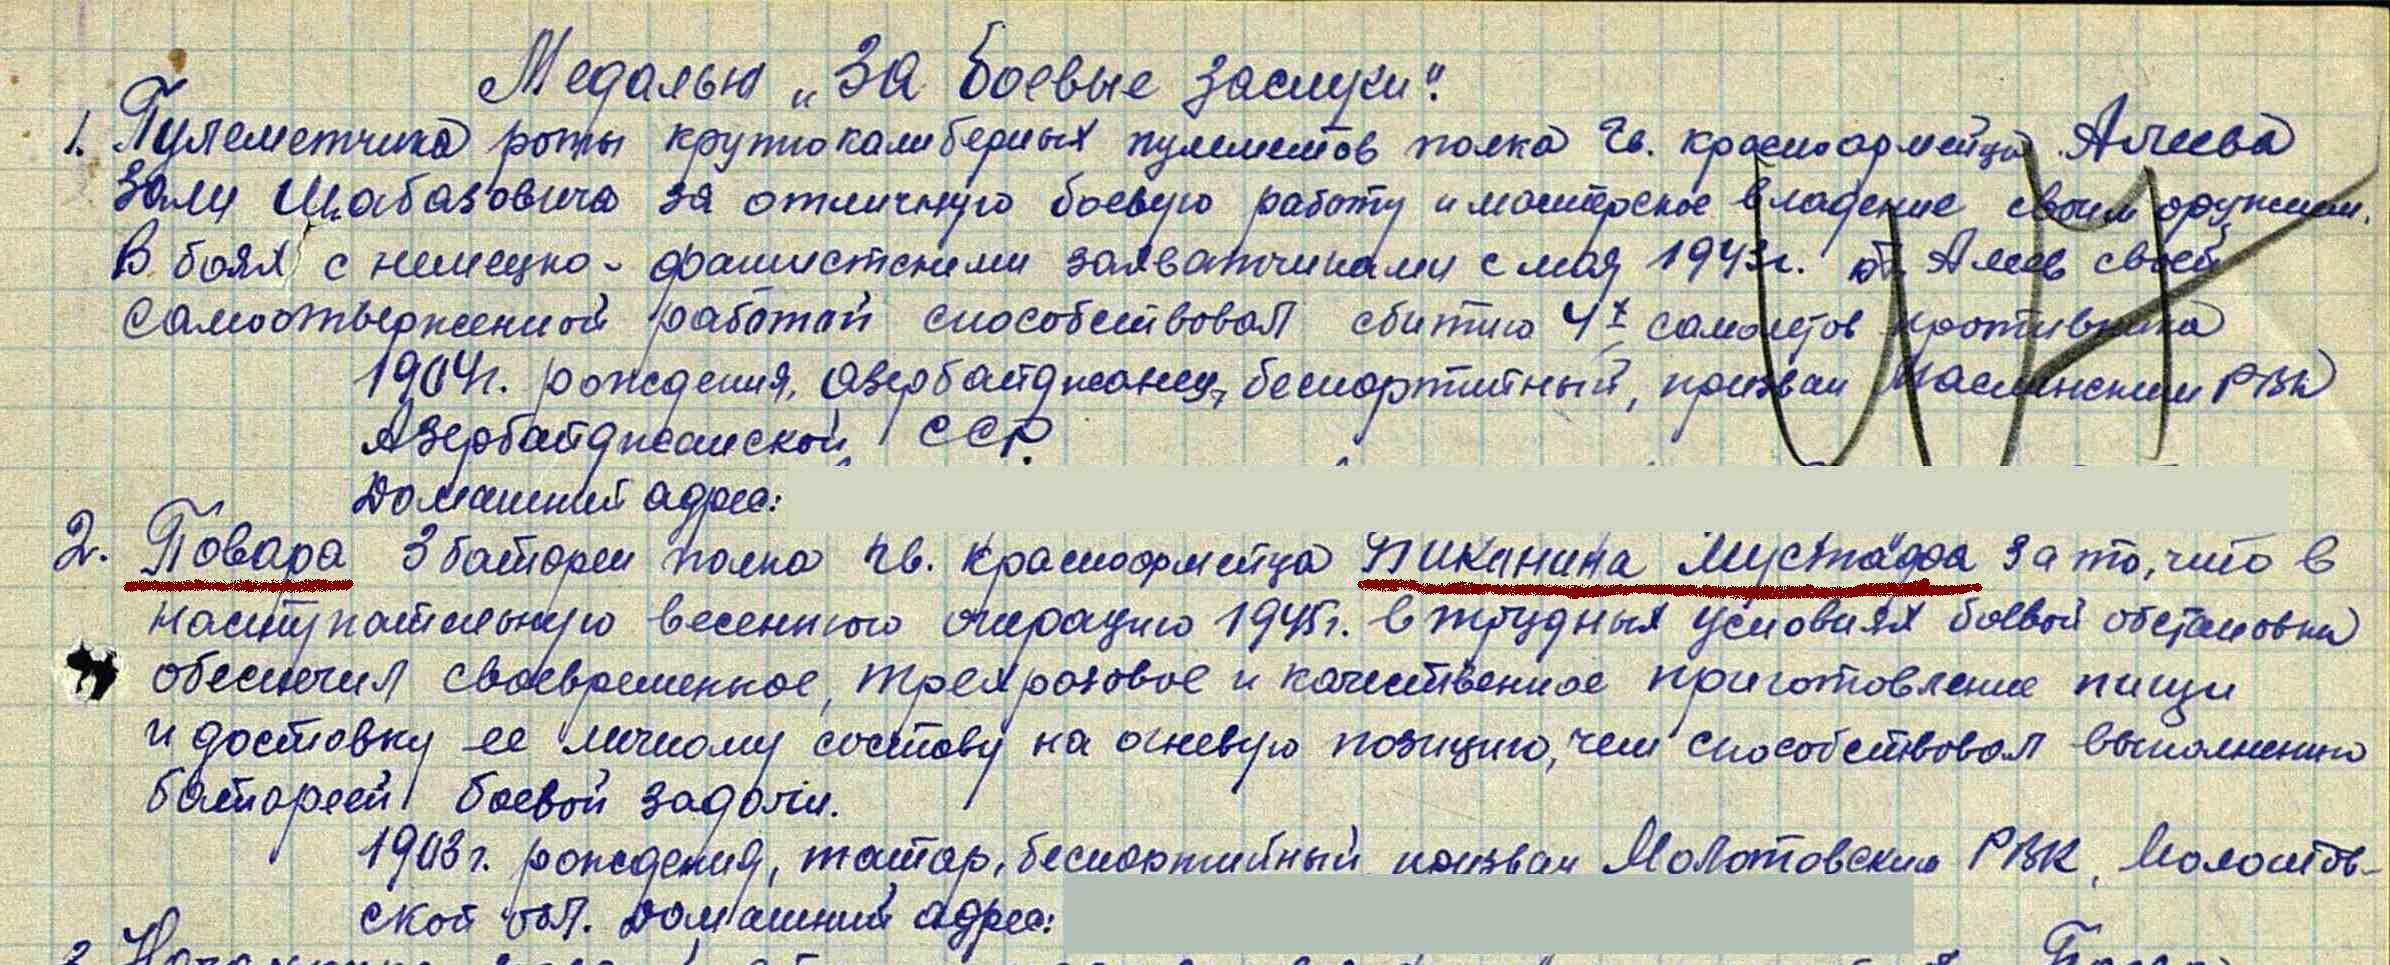 Медалью „За боевые заслуги“.
1. Пулеметчика роты крупнокалиберных пулеметов полка Гв. красноармейца Алиева
Зали Шабазовича за отличную боевую работу и мастерское владение своим оружием.
В боях с немецко-фашистскими захватчиками с мая 1943г. т. Алиев своей
самоотверженной работой способствовал сбитию 4х самолетов противника
1904г. рождения, азербайджанец, беспартийный, призван РВК
Азербайджанской ССР.
Домашний адрес:
2. Повара 3 батареи полка гв. красноармейца Пиканина Мустафа за то, что в
наступательную весеннюю операцию 1945г. в трудных условиях боевой обстановки
обеспечил своевременное, трехразовое и качественное приготовление пищи
и доставку ее личному составу на огневую позицию, чем способствовал выполнению
батареей боевой задачи.
1903г. рождения, татар, беспартийный, призван Молотовским РВК, Молотов-
ской обл. Домашний адрес: